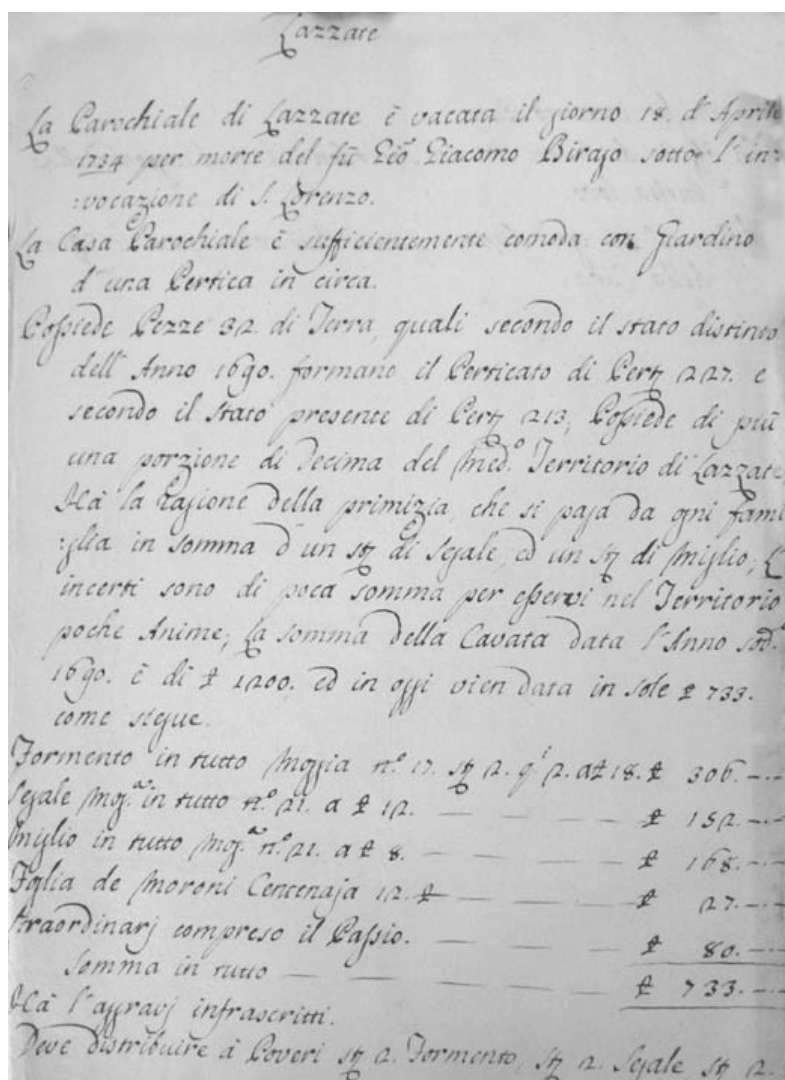 Lazzate
La Parochiale di Lazzate è vacata il giorno 18. d' Aprile
1734 per morte del fù Gio Giacomo Birago sotto l' in:
:vocazione di S. Lorenzo.
La Casa Parochiale è sufficientemente comoda con Giardino
d' una Pertica in circa.
Possiede Pezze 32. di Terra, quali secondo il stato distinto
dell' Anno 1690. formano il Perticato di Pert. 227. e
secondo il stato presente di Pert. 213; Possiede di più
una porzione di Decima del med.o Territorio di Lazzate,
Hà la Ragione della primizia, che si paga da ogni fami
:glia in somma d' un st. di Segale, ed un st. di Miglio; L'
incerti sono di poca somma per esservi nel Territorio
poche Anime; La somma della Cavata data l' Anno sod.o
1690. è di £ 1200. ed in oggi vien data in sole £ 733.
come siegue.
Formento in tutto Moggia n.o 17. st. 2. q.i 2. a £ 18. £ 306.-.-
Segale Mog.a in tutto n.o 21. a £ 12. — — — £ 152.-.-
Miglio in tutto Mog.a n.o 21. a £ 8. — — — £ 168.-.-
Foglia de Moroni Centenaja 12. £ — — — £ 27.-.-
straordinarj compreso il Passio. — — — £ 80.-.-
Somma in tutto — — — £ 733.-.-
Hà l' aggravj infrascritti.
Deve distribuire à Poveri st. 2. Formento, st. 2. Segale st. 2.